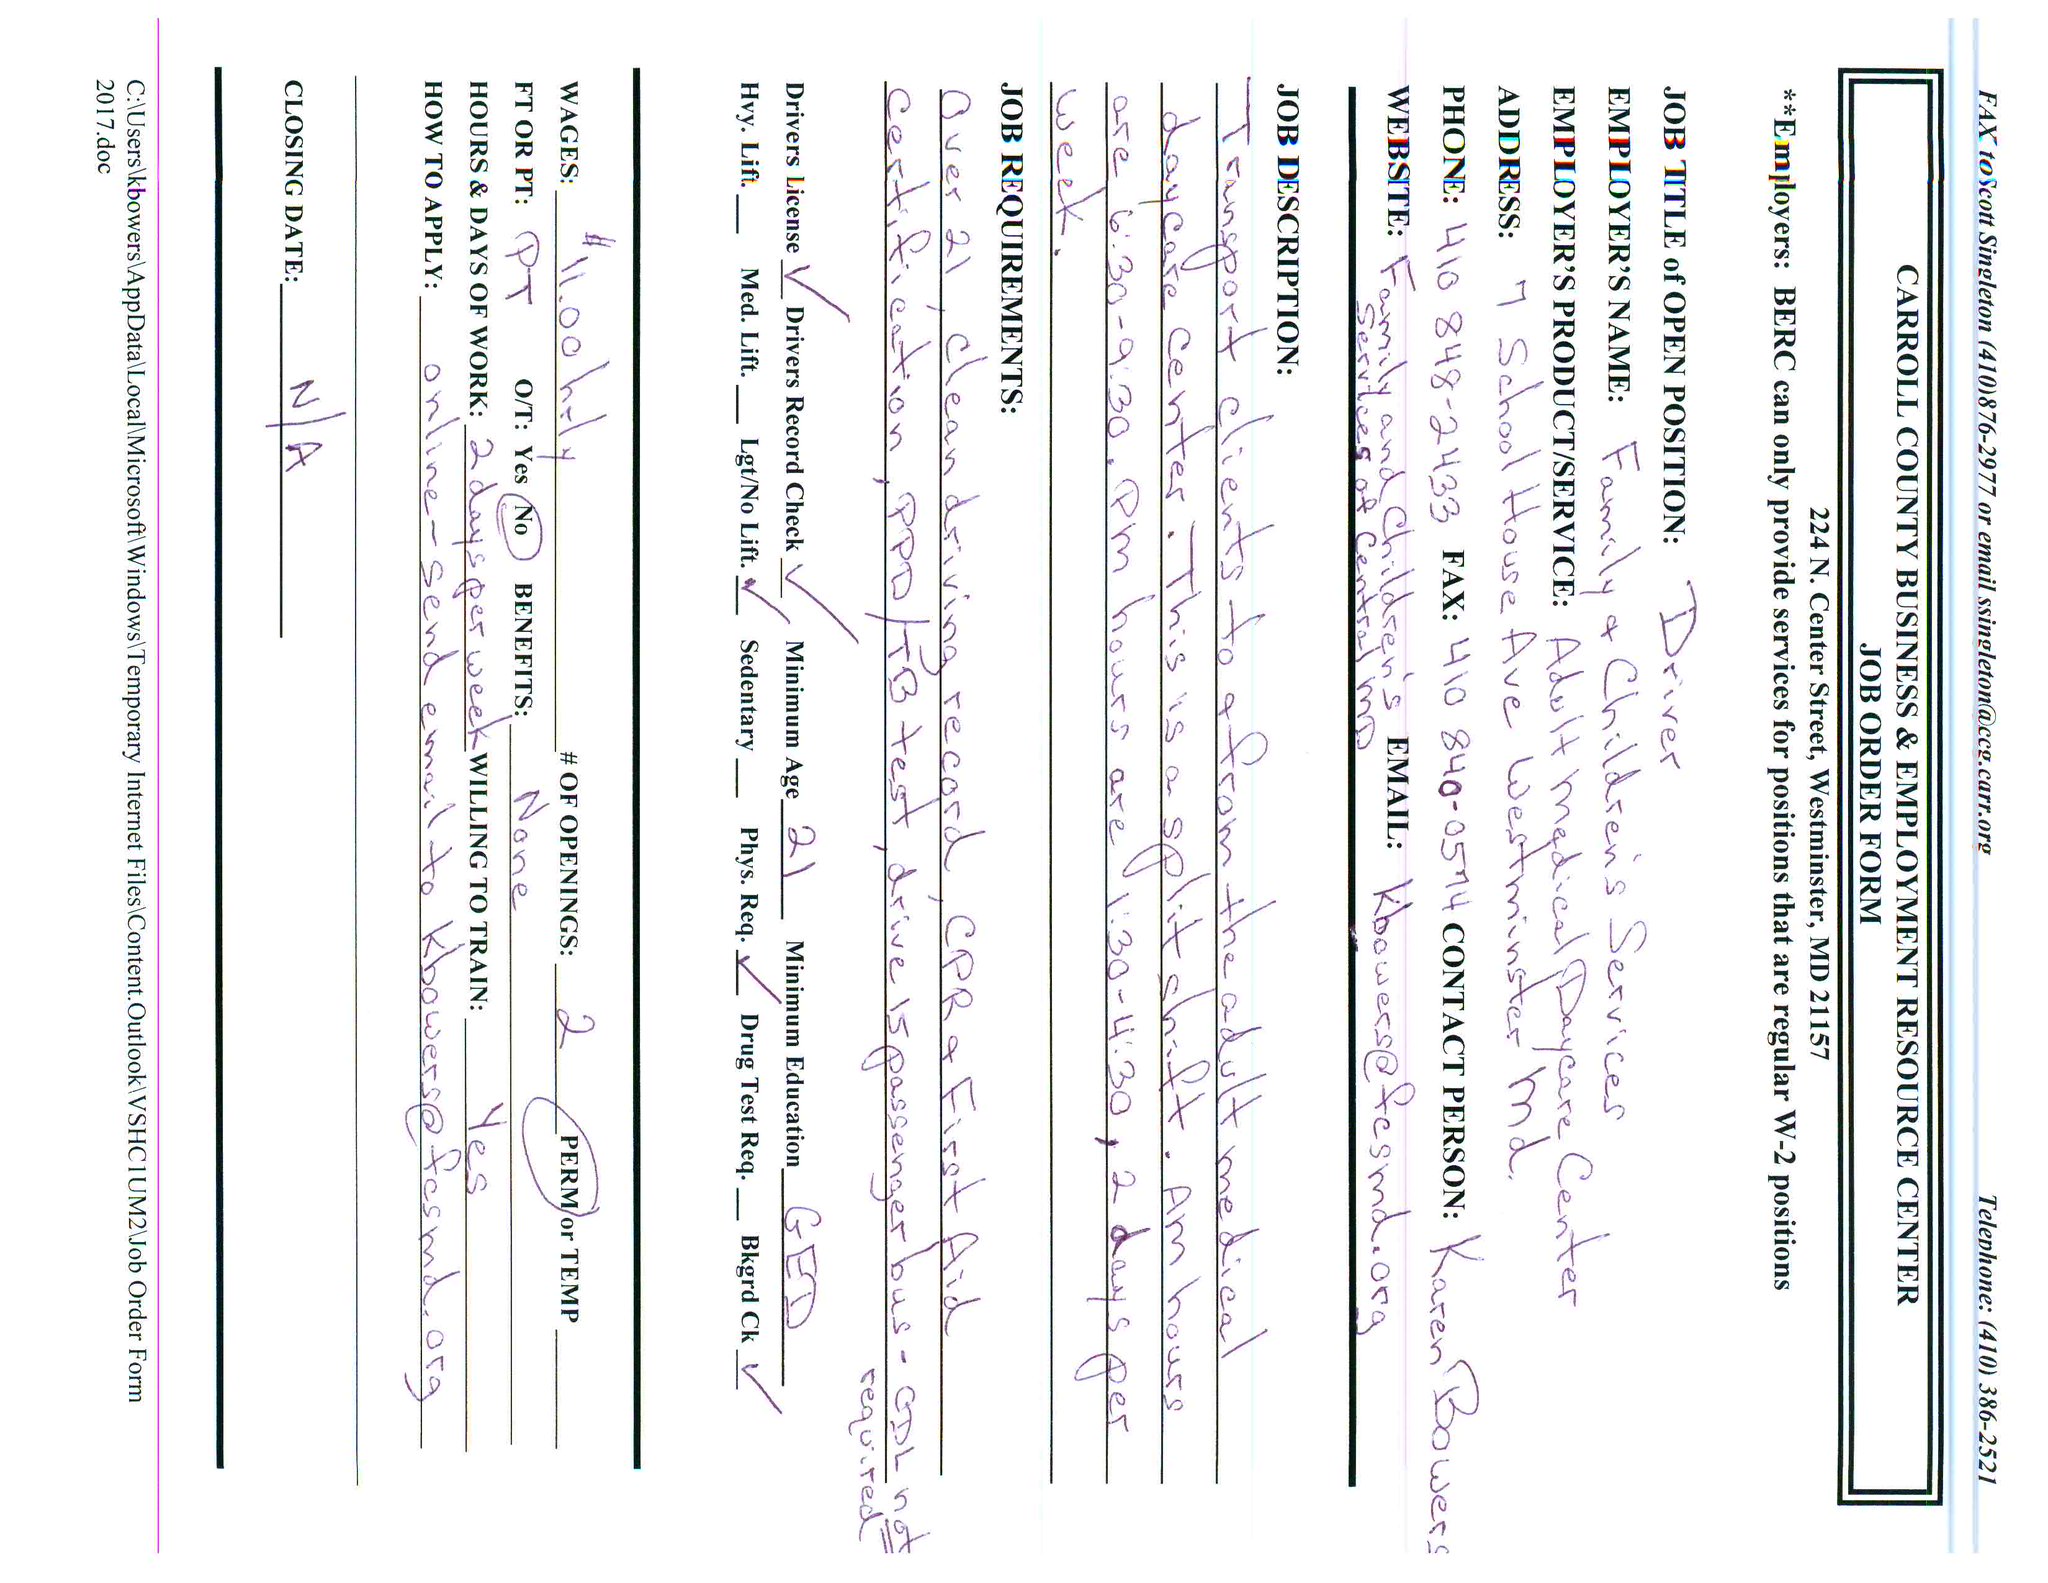 FAX toScott Singleton (410)876-2977 or email ssingleton@ccg.carr.org Telephone: (410) 386-2521
CARROLL COUNTY BUSINESS & EMPLOYMENT RESOURCE CENTER
JOB ORDER FORM
224 N. Center Street, Westminster, MD 21157
**Employers: BERC can only provide services for positions that are regular W-2 positions
JOB TITLE of OPEN POSITION: Driver
EMPLOYER'S NAME: Family & Children's Services
EMPLOYER'S PRODUCT/SERVICE: Adult Medical Daycare Center
ADDRESS: 7 School House Ave Westminster Md.
PHONE: 410 848-2433 FAX: 410 840-0574 CONTACT PERSON: Karen Bowers
WEBSITE: Family and Children's EMAIL: Kbowers@fcsmd.org
Services of Central MD
JOB DESCRIPTION:
Transport clients to & from the adult medical
daycare center. This is a split shift. AM hours
are 6:30-9:30. PM hours are 1:30-4:30, 2 days per
week.
JOB REQUIREMENTS:
Over 21, clean driving record, CPR & First Aid
Certification, PPD/TB test, drive 15 passenger bus - CDL not
required
Drivers License ✓ Drivers Record Check ✓ Minimum Age 21 Minimum Education GED
Hvy. Lift. __ Med. Lift. __ Lgt/No Lift. ✓ Sedentary __ Phys. Req. ✓ Drug Test Req. __ Bkgrd Ck ✓
WAGES: $11.00 hrly # OF OPENINGS: 2 PERM or TEMP
FT OR PT: PT O/T: Yes No BENEFITS: None
HOURS & DAYS OF WORK: 2 days per week WILLING TO TRAIN: Yes
HOW TO APPLY: online - send email to Kbowers@fcsmd.org
CLOSING DATE: N/A
C:\Users\kbowers\AppData\Local\Microsoft\Windows\Temporary Internet Files\Content.Outlook\VSHC1UM2\Job Order Form
2017.doc